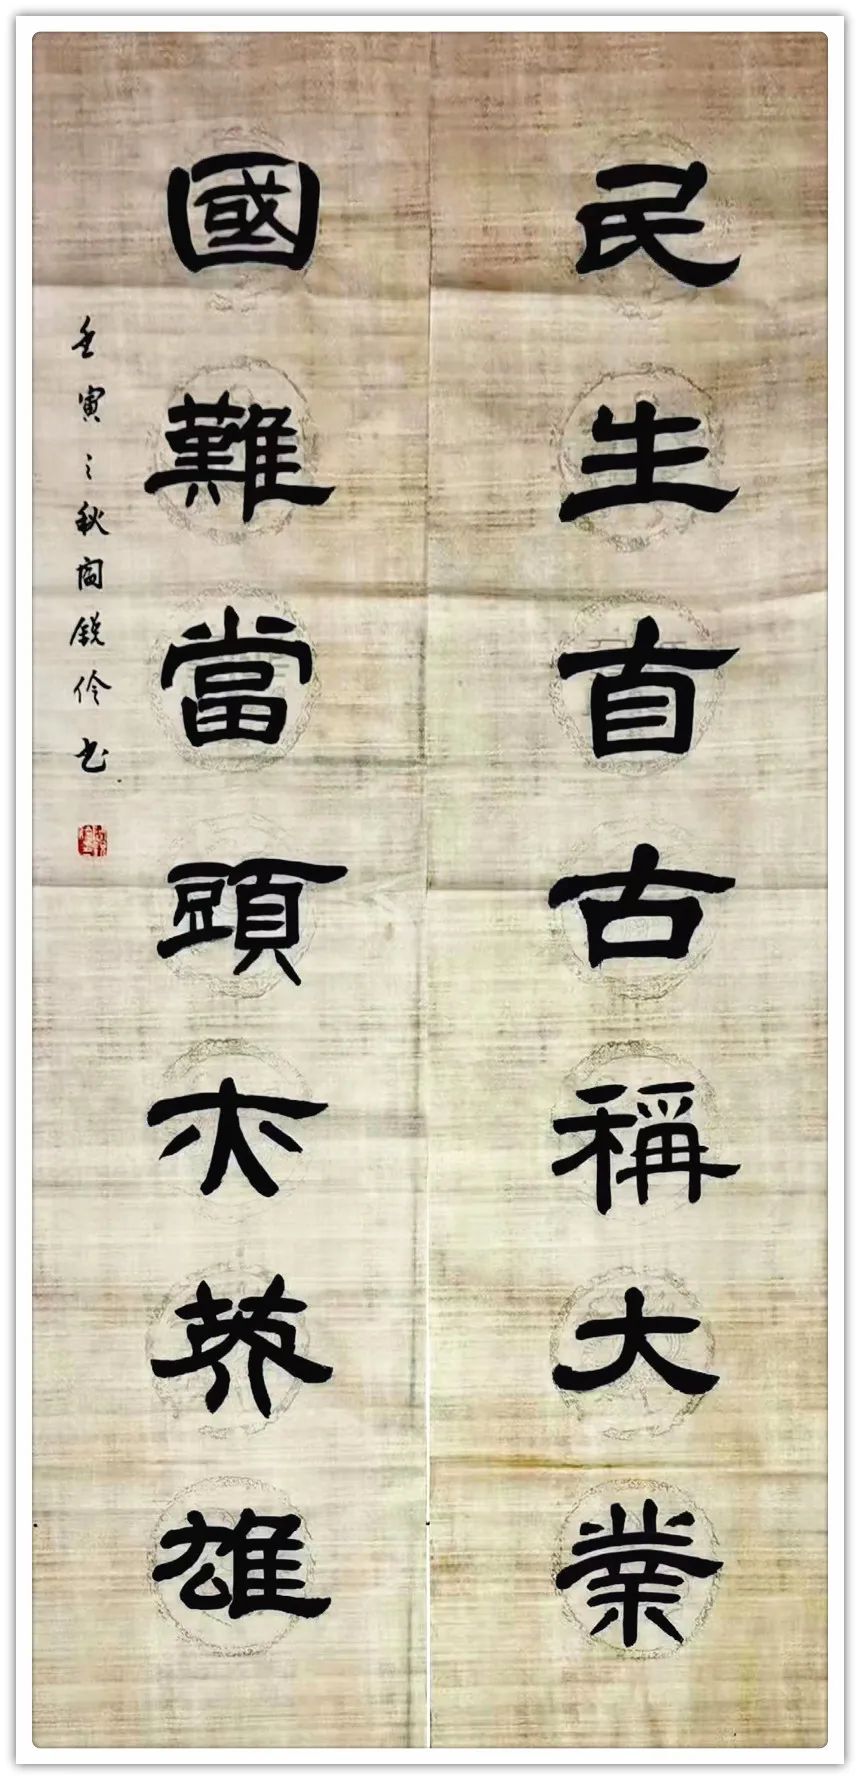 民生自古稱大業
國難當頭亦英雄
壬寅之秋閻銳伶书